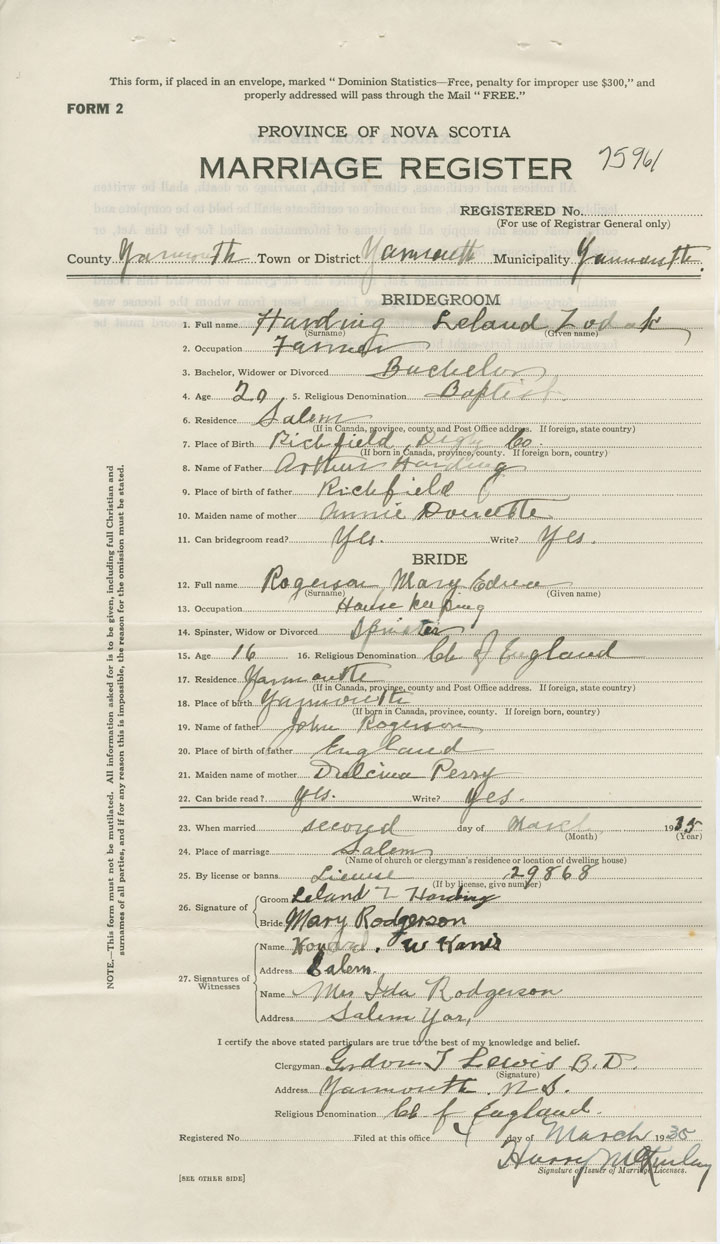 This form, if placed in an envelope, marked " Dominion Statistics—Free, penalty for improper use $300," and
properly addressed will pass through the Mail " FREE."
FORM 2
PROVINCE OF NOVA SCOTIA
MARRIAGE REGISTER 75961
REGISTERED No.
(For use of Registrar General only)
County Yarmouth Town or District Yarmouth Municipality Yarmouth.
BRIDEGROOM
1. Full name Harding Leland
(Surname) (Given name)
2. Occupation Farmer
3. Bachelor, Widower or Divorced Bachelor
4. Age 20 5. Religious Denomination Baptist.
6. Residence Salem
(If in Canada, province, county and Post Office address. If foreign, state country)
7. Place of Birth Richfield Digby Co.
(If born in Canada, province, county. If foreign born, country)
8. Name of Father Arthur Harding
9. Place of birth of father Richfield
10. Maiden name of mother Annie Doucette
11. Can bridegroom read? Yes. Write? Yes.
BRIDE
12. Full name Rogerson Mary Edna
(Surname) (Given name)
13. Occupation House keeping
14. Spinster, Widow or Divorced Spinster
15. Age 16 16. Religious Denomination Ch of England
17. Residence Yarmouth
(If in Canada, province, county and Post Office address. If foreign, state country)
18. Place of birth Yarmouth
(If born in Canada, province, county. If foreign born, country)
19. Name of father John Rogerson
20. Place of birth of father England
21. Maiden name of mother Dulcina Perry
22. Can bride read? Yes. Write? Yes.
23. When married second day of March 1935
(Month) (Year)
24. Place of marriage Salem
(Name of church or clergyman's residence or location of dwelling house)
25. By license or banns License 29868
(If by license, give number)
26. Signature of
Groom Leland Z Harding
Bride Mary Rodgerson
27. Signatures of Witnesses
Name W Harris
Address Salem.
Name Mrs Ida Rodgerson
Address Salem Yar,
I certify the above stated particulars are true to the best of my knowledge and belief.
Clergyman Gordon T Lewis B.D.
(Signature)
Address Yarmouth. N.S.
Religious Denomination Ch of England.
Registered No. Filed at this office day of March 1935
Harry McKinlay
Signature of Issuer of Marriage Licenses.
[SEE OTHER SIDE]
NOTE.—This form must not be mutilated. All information asked for is to be given, including full Christian and
surnames of all parties, and if for any reason this is impossible, the reason for the omission must be stated.